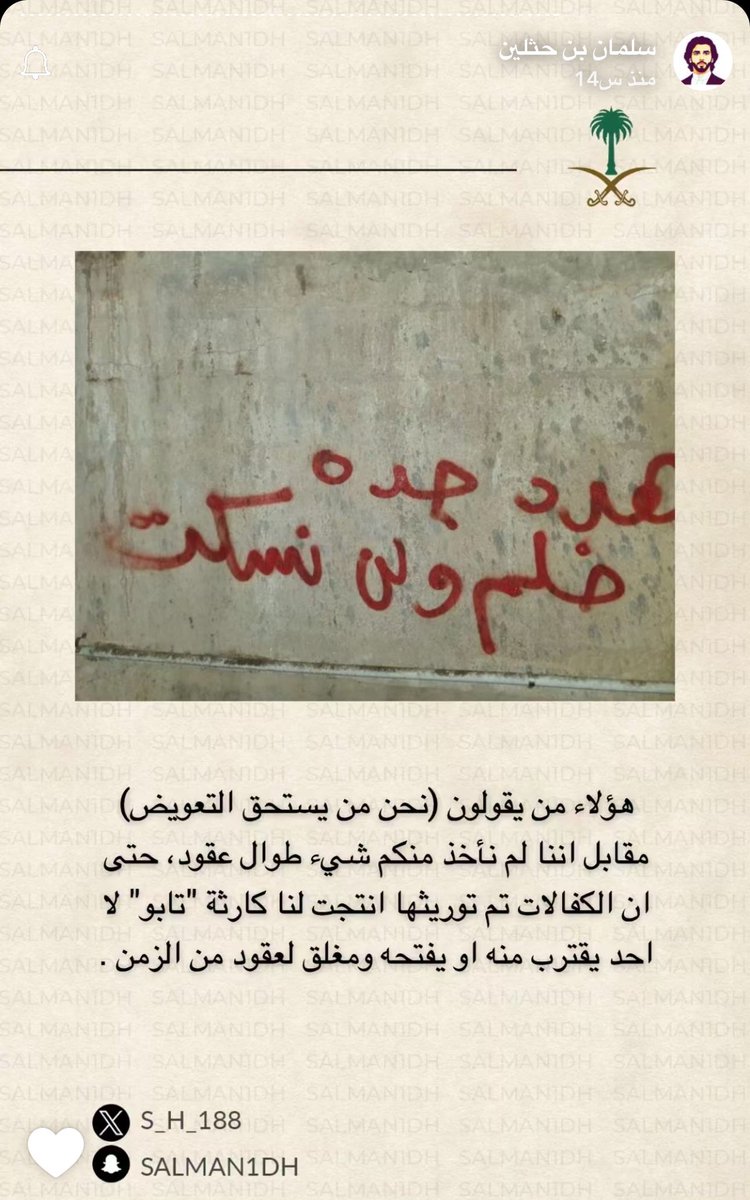 سلمان بن حثلين
منذ س14
هدد جده
ضلم ولن نسكت
هؤلاء من يقولون (نحن من يستحق التعويض)
مقابل اننا لم نأخذ منكم شيء طوال عقود، حتى
ان الكفالات تم توريثها انتجت لنا كارثة "تابو" لا
احد يقترب منه او يفتحه ومغلق لعقود من الزمن .
S_H_188
SALMAN1DH